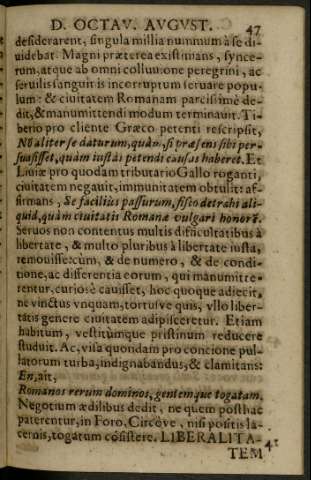 D. OCTAV. AVGVST. 47
desiderarent, singula millia nummum à se di-
uidebat. Magni præterea existimans, synce-
rum, atque ab omni colluuione peregrini, ac
seruilis sanguinis incorruptum seruare popu-
lum: & ciuitatem Romanam parcissimè de-
dit, & manumittendi modum terminauit. Ti-
berio pro cliente Græco petenti rescripsit,
Nō aliter se daturum, quàm, si præsens sibi per-
suasisset, quàm iustas petendi causas haberet. Et
Liuiæ pro quodam tributario Gallo roganti,
ciuitatem negauit, immunitatem obtulit: af-
firmans, Se facilius passurum, fisco detrahi ali-
quid, quàm ciuitatis Romanæ vulgari honorē.
Seruos non contentus multis difficultatibus à
libertate, & multo pluribus à libertate iusta,
remouisse: cùm, & de numero, & de condi-
tione, ac differentia eorum, qui manumitte-
rentur, curiosè cauisset, hoc quoque adiecit,
ne vinctus vnquam, tortusve quis, vllo liber-
tatis genere ciuitatem adipisceretur. Etiam
habitum, vestitùmque pristinum reducere
studuit. Ac, visa quondam pro concione pul-
latorum turba, indignabundus, & clamitans:
En, ait,
Romanos rerum dominos, gentemque togatam,
Negotium ædilibus dedit, ne quem posthac
paterentur, in Foro, Circóve, nisi positis la-
cernis, togatum cōsistere. LIBERALITA-
TEM